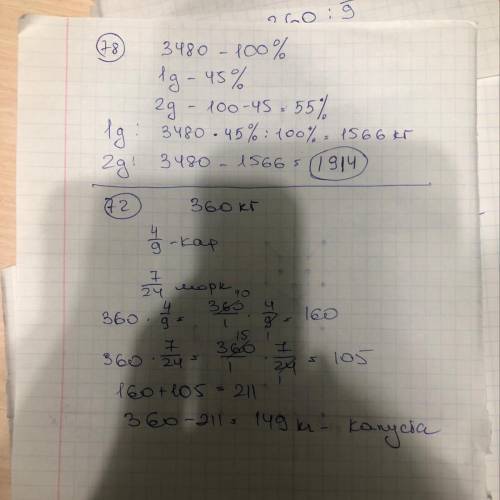 360 : 9
78 3480 - 100%
1g - 45%
2g - 100-45 = 55%
1g: 3480 * 45% : 100% = 1566 кг
2g: 3480 - 1566 = 1914
72 360 кг
4/9 - кар
7/24 морк
360 · 4/9 = 360/1 · 4/9 = 160
360 · 7/24 = 360/1 · 7/24 = 105
160+105 = 211
360-211 = 149 кг - капуста